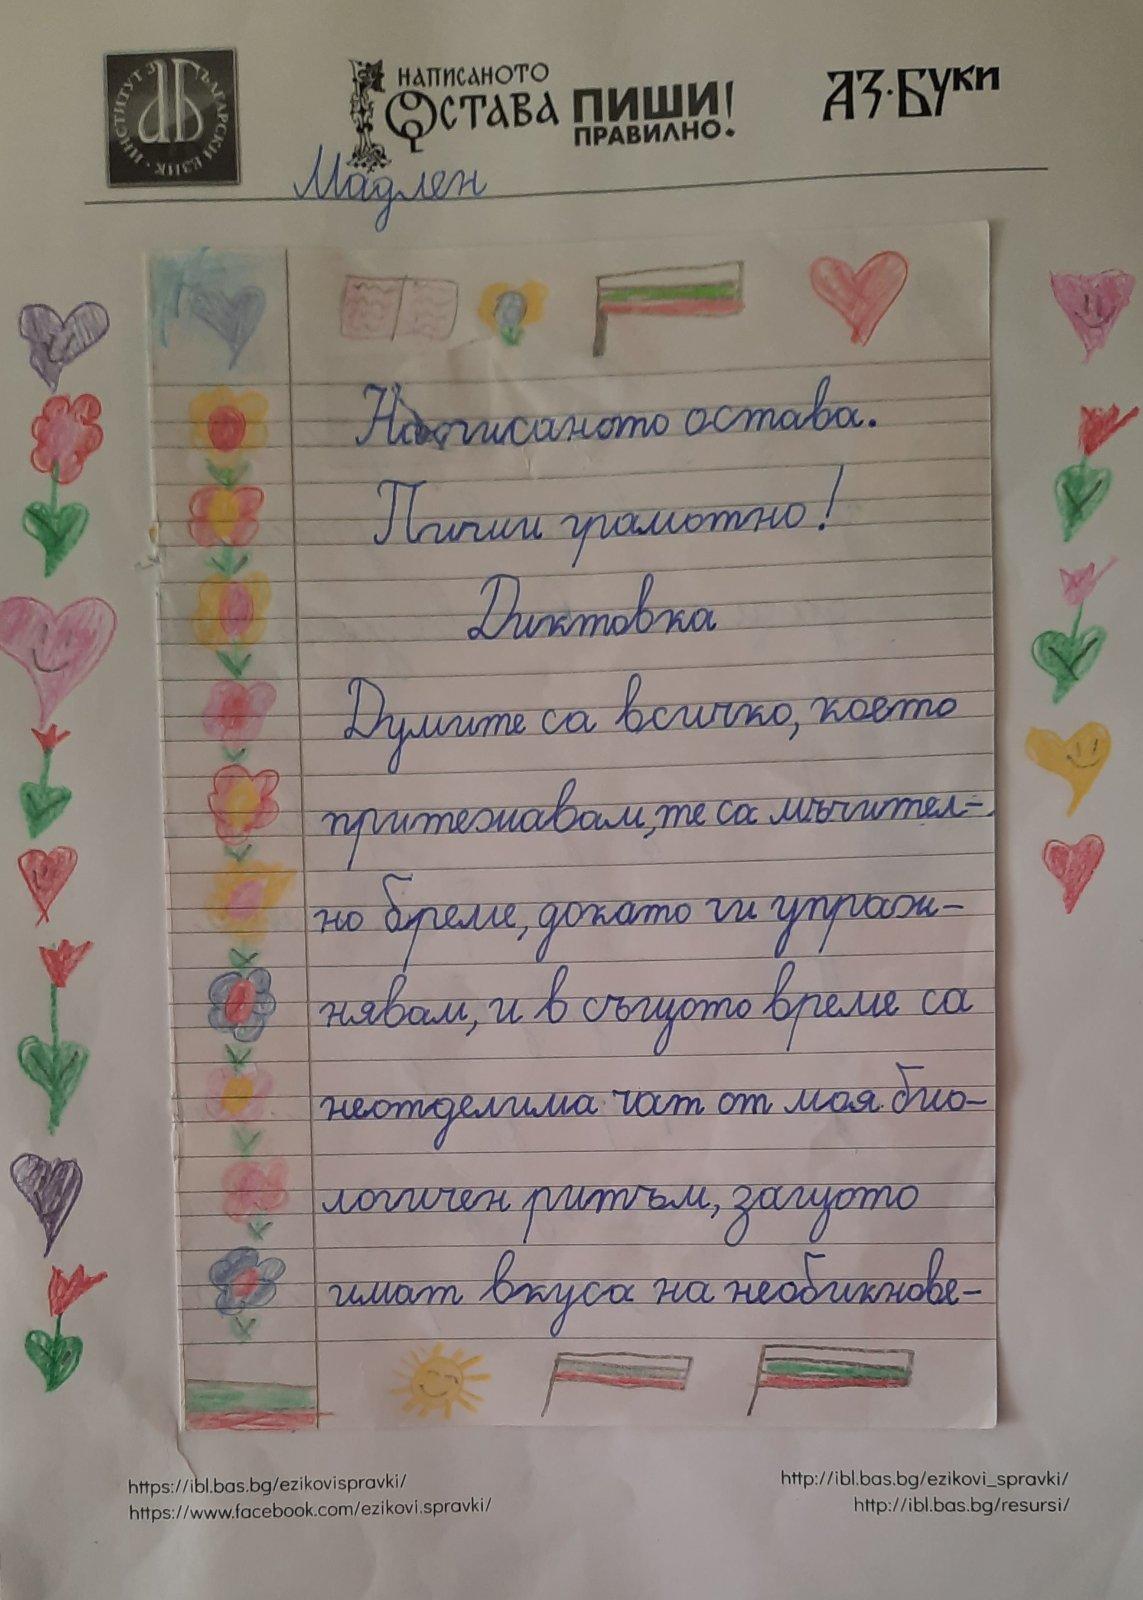 ИНСТИТУТ ЗА БЪЛГАРСКИ ЕЗИК
НАПИСАНОТО
ОСТАВА
ПИШИ!
ПРАВИЛНО.
АЗ·БУКИ
Мадлен
Написаното остава.
Пиши грамотно!
Диктовка
Думите са всичко, което
притежавам, те са мъчител-
но бреме, докато ги упраж-
нявам, и в същото време са
неотделима чат от моя био-
логичен ритъм, защото
имат вкуса на необикнове-
https://ibl.bas.bg/ezikovispravki/
https://www.facebook.com/ezikovi.spravki/
http://ibl.bas.bg/ezikovi_spravki/
http://ibl.bas.bg/resursi/